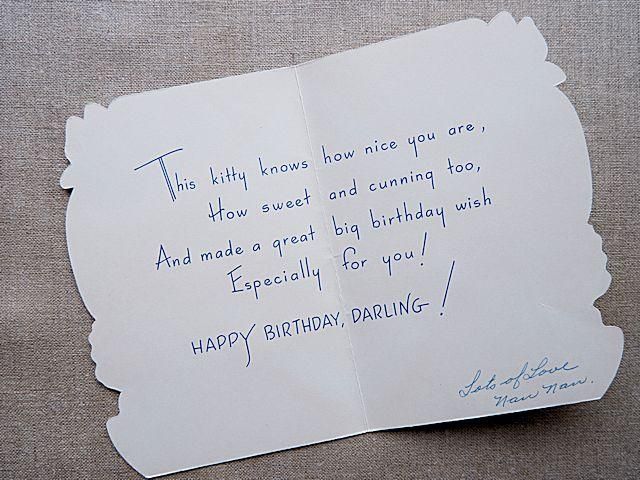 This kitty knows how nice you are,
How sweet and cunning too,
And made a great big birthday wish
Especially for you!
HAPPY BIRTHDAY, DARLING!
Lots of Love
Nan Nan.